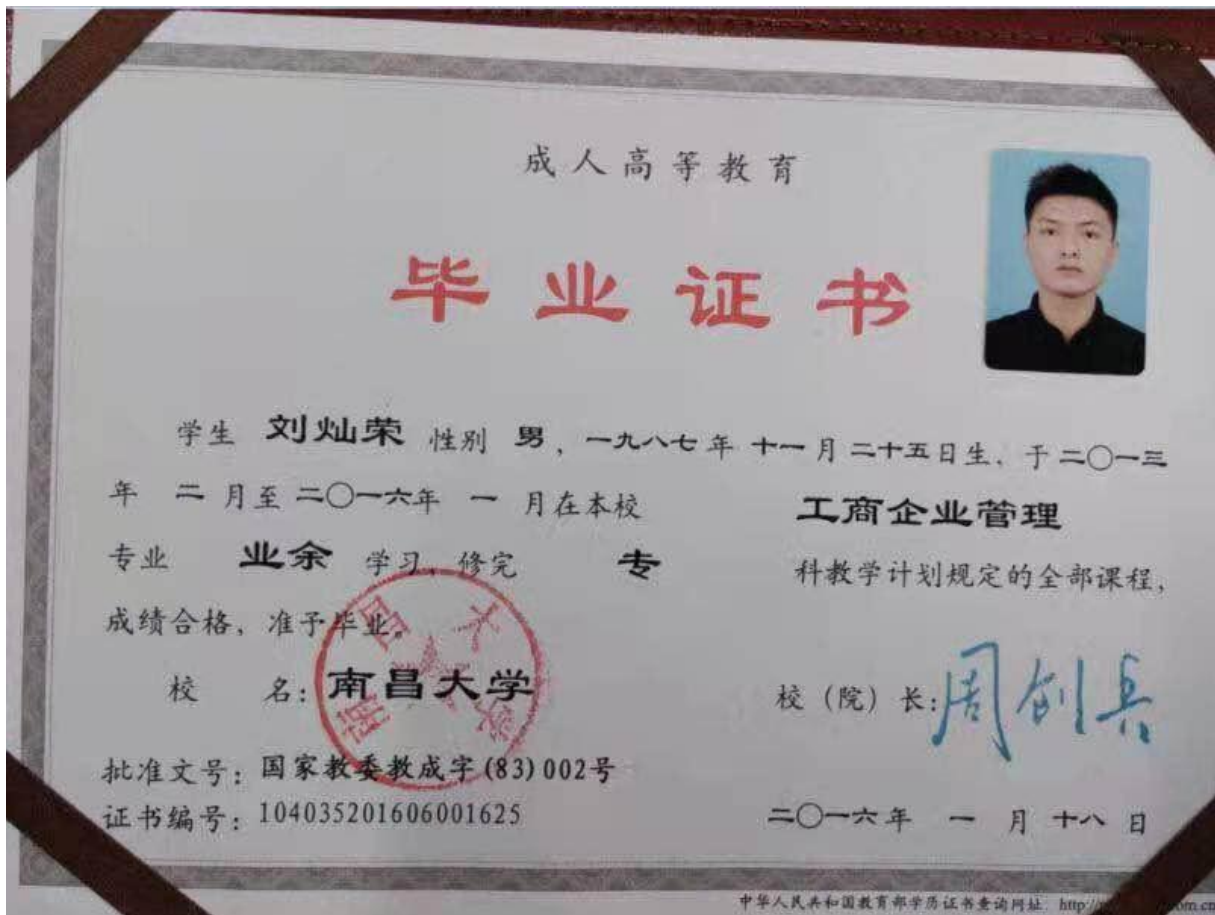 成人高等教育
毕业证书
学生 刘灿荣 性别 男，一九八七年 十一月二十五日生，于二〇一三
年 二 月至二〇一六年 一 月在本校 工商企业管理
专业 业余 学习，修完 专 科教学计划规定的全部课程，
成绩合格，准予毕业。
校 名：南昌大学 校（院）长：周创兵
南昌大学
批准文号：国家教委教成字(83)002号
证书编号：104035201606001625 二〇一六年 一 月 十八 日
中华人民共和国教育部学历证书查询网址：http://